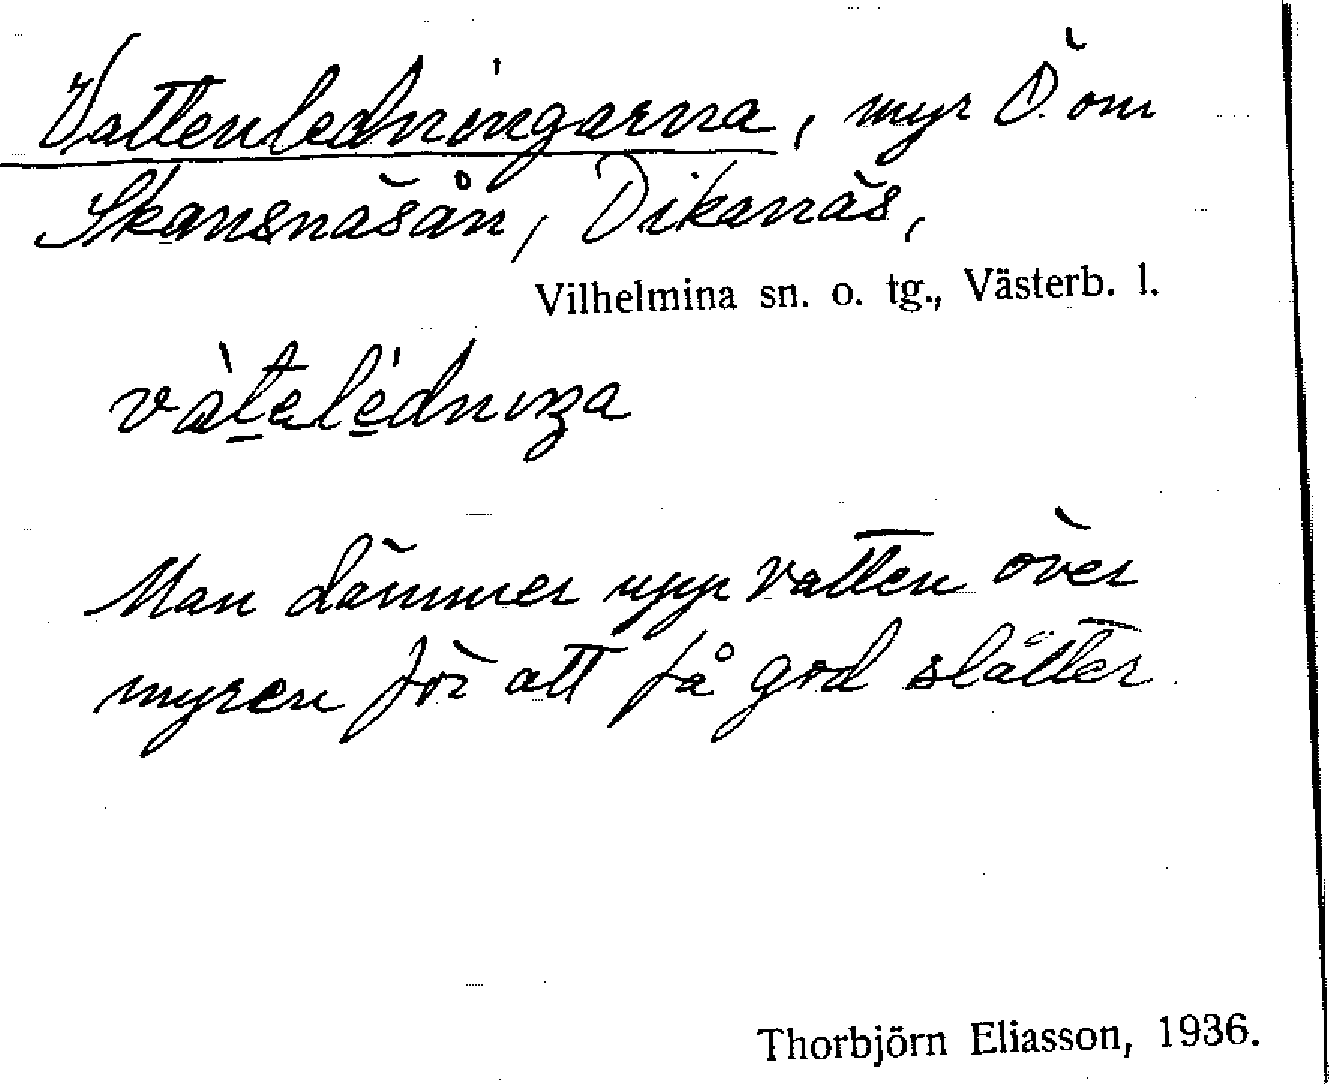 Vattenledningarna, myr Ö. om
Skansnäsån, Dikanäs,
Vilhelmina sn. o. tg., Västerb. l.
Man dämmer upp vatten över
myren för att få god slåtter
Thorbjörn Eliasson, 1936.